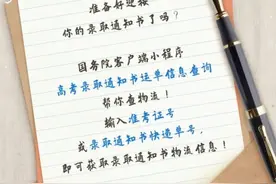 准备好迎接
你的录取通知书了吗？
国务院客户端小程序
高考录取通知书运单信息查询
帮你查物流！
输入准考证号
或录取通知书快递单号，
即可获取录取通知书物流信息！